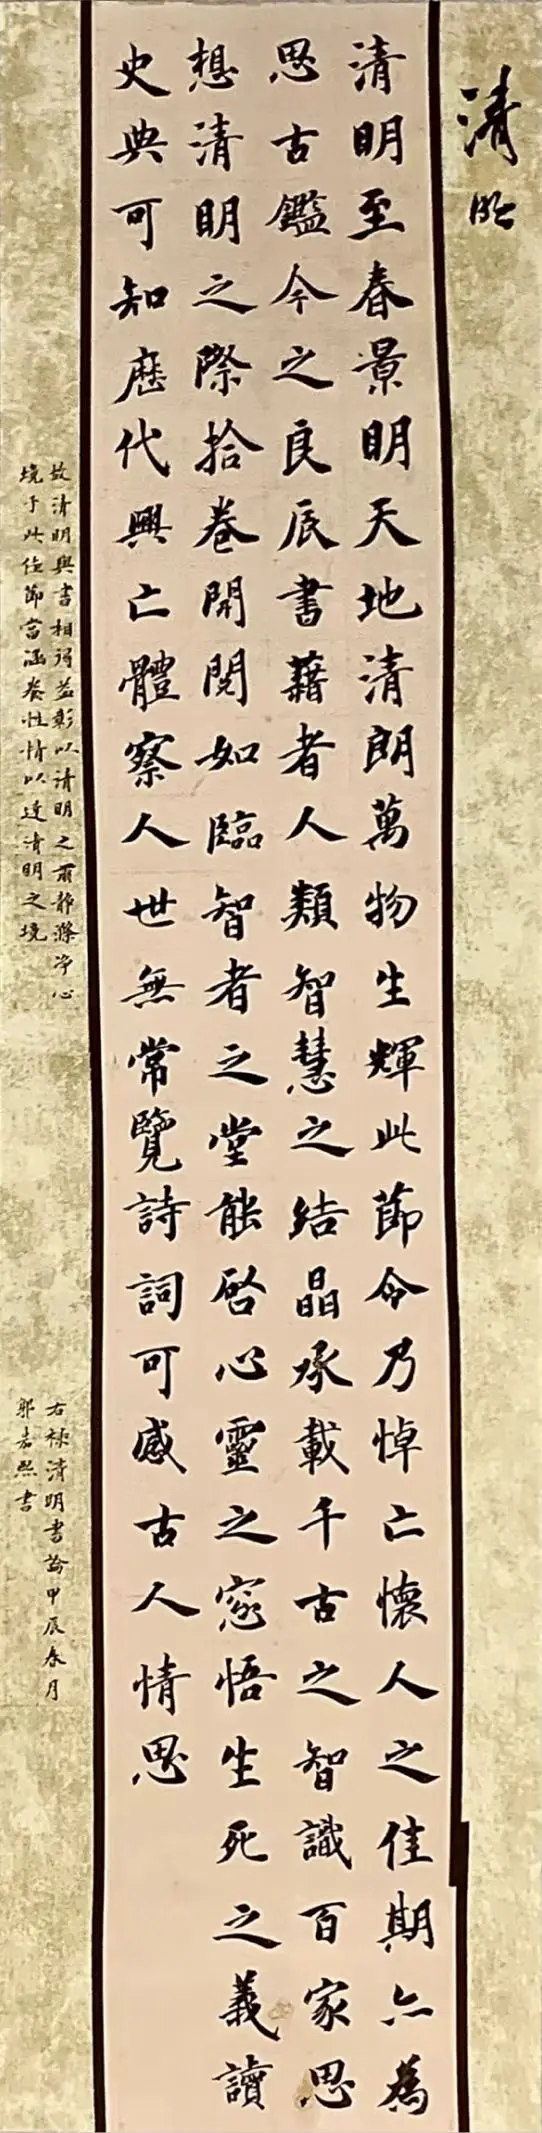 清明
清明至春景明天地清朗萬物生輝此節令乃悼亡懷人之佳期亦為
思古鑑今之良辰書藉者人類智慧之結晶承載千古之智識百家思
想清明之際拾卷開閱如臨智者之堂能啓心靈之窓悟生死之義讀
史典可知歷代興亡體察人世無常覽詩詞可感古人情思
故清明與書相得益彰以清明之雨靜滌净心
境于此佳節當涵養性情以達清明之境
右錄清明書論甲辰春月
郭嘉熙書